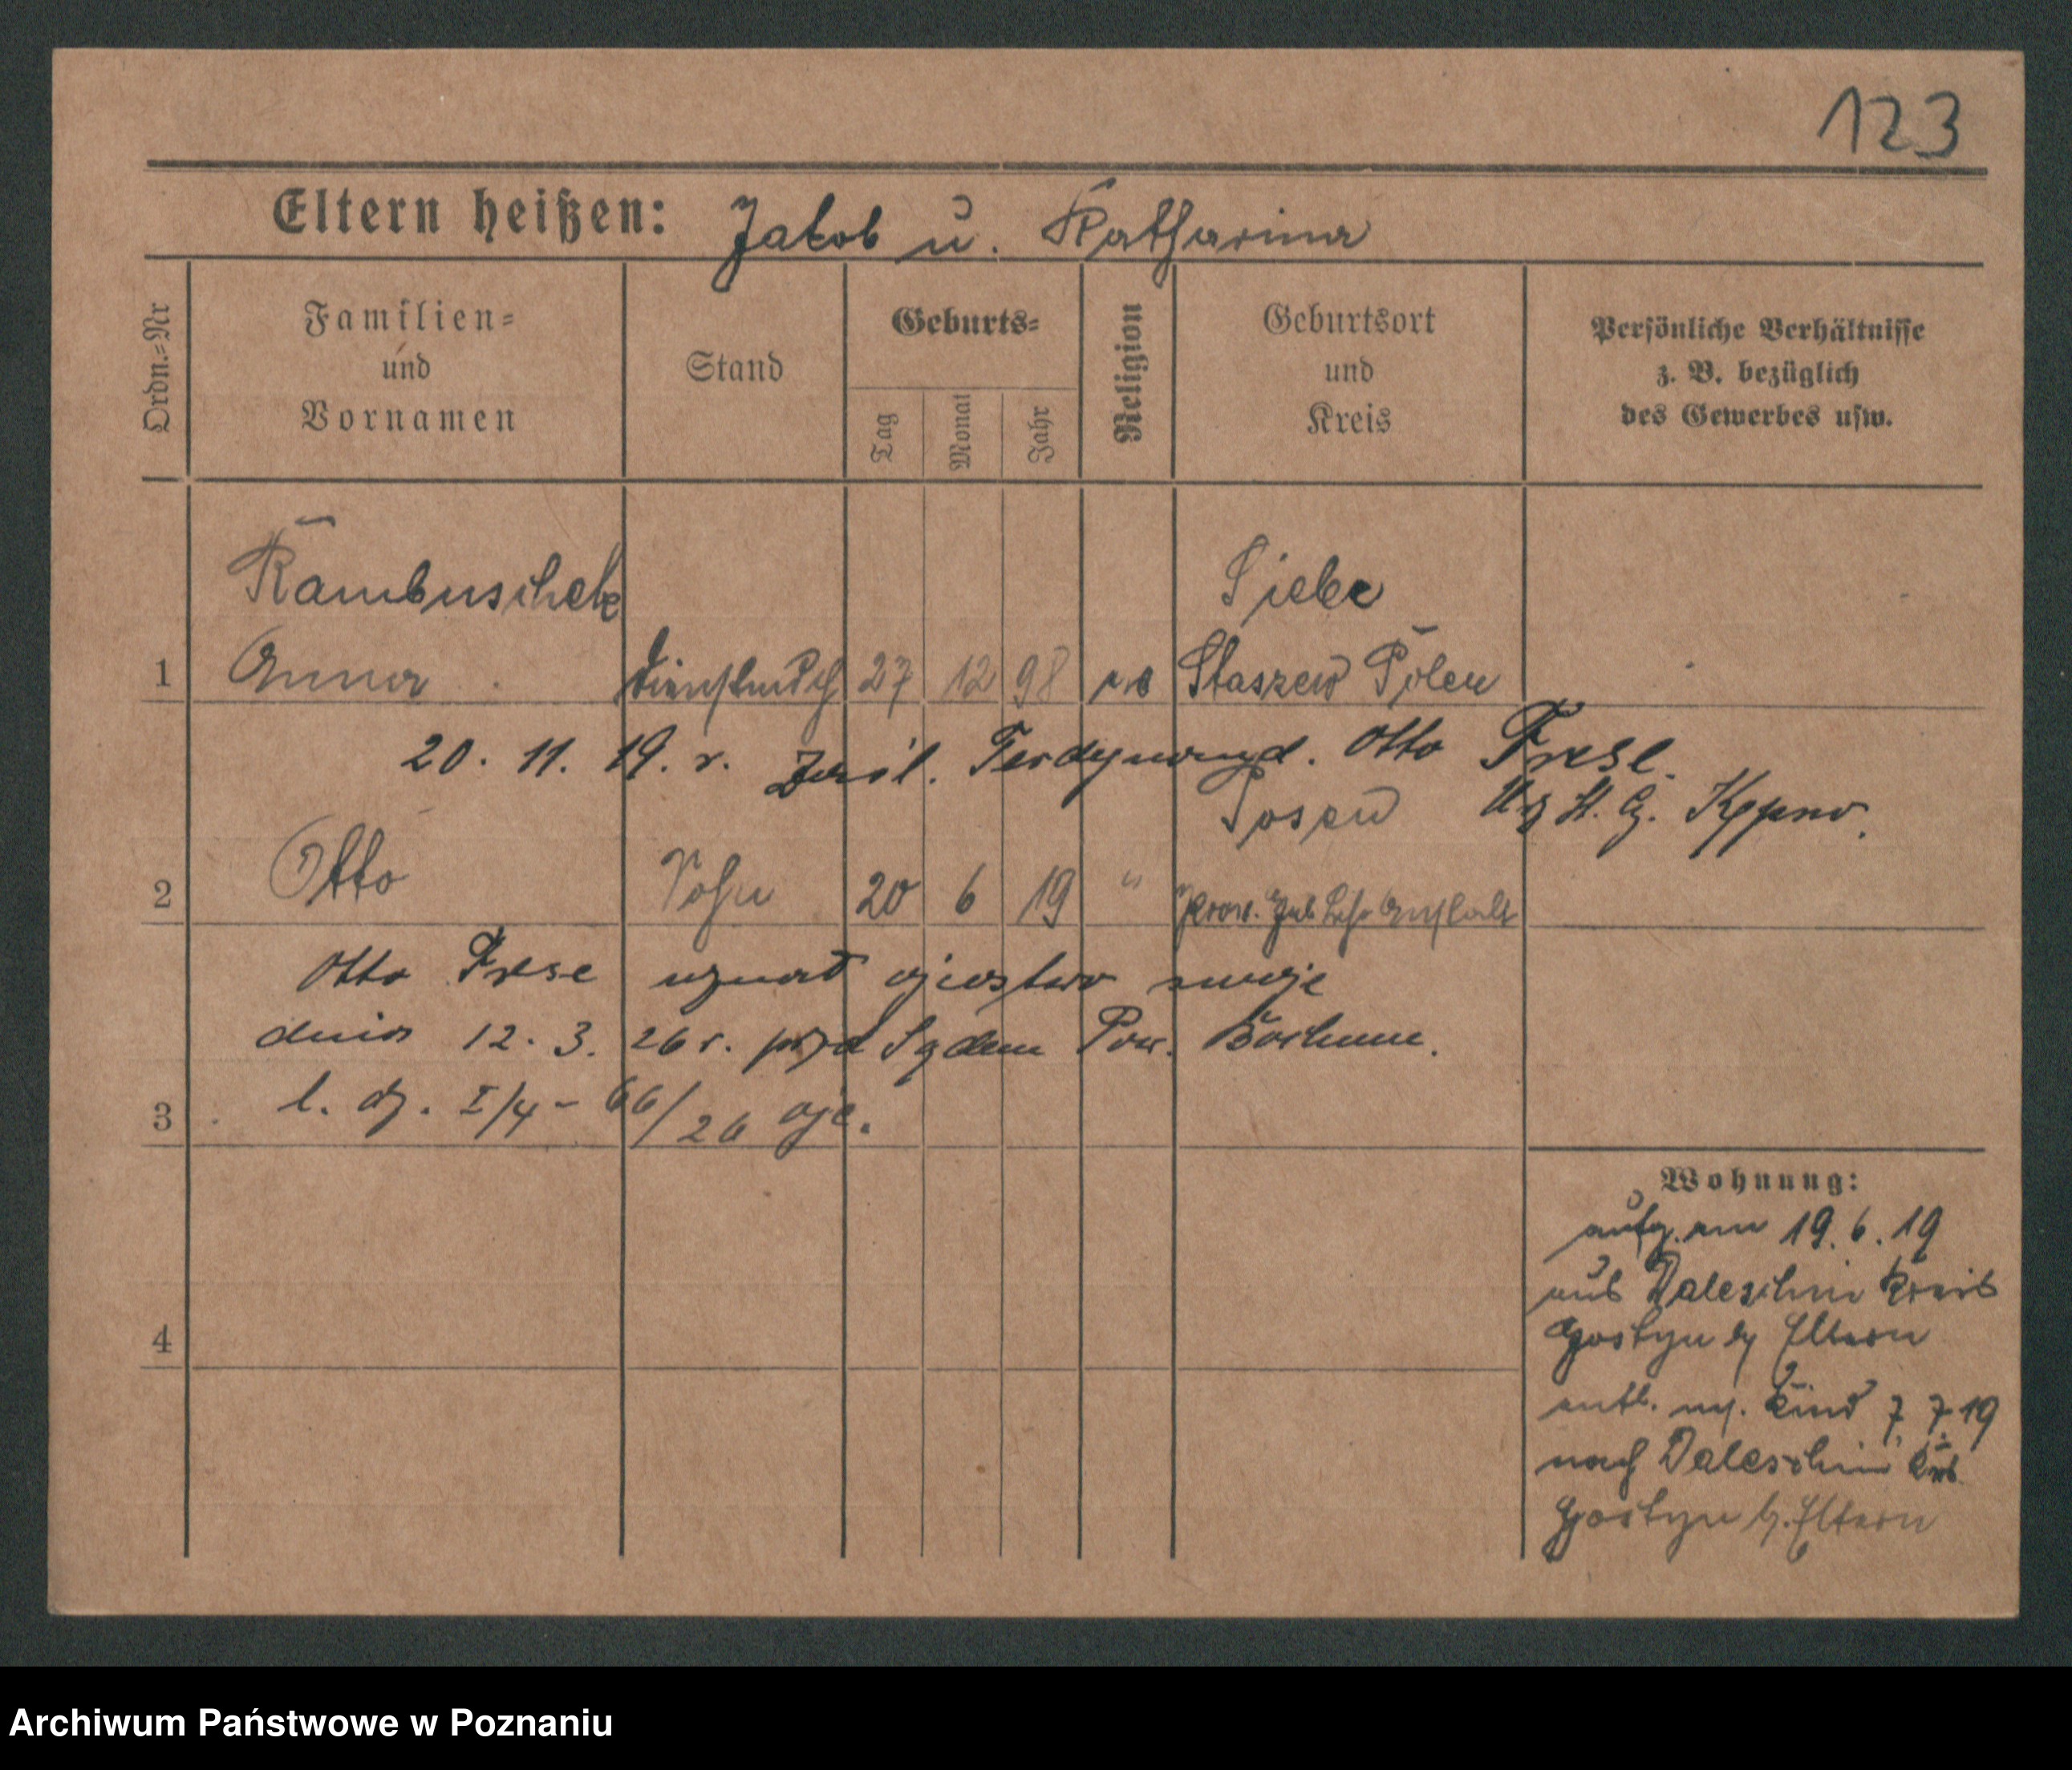 123
Eltern heißen: Jakob u. Katharina
Ordn.=Nr
Familien=
und
Vornamen
Stand
Geburts=
Tag
Monat
Jahr
Religion
Geburtsort
und
Kreis
Persönliche Verhältnisse
z. B. bezüglich
des Gewerbes usw.
Kambuschek
Siebe
1 Anna 27 12 98 Staszew Polen
20. 11. 19. r. Ferdynand. Otto Frese.
Posen Kępno.
2 Otto Sohn 20 6 19 " Prov. Heb Lehr Anstalt
Otto Frese uznał ojcostwo swoje
dnia 12. 3. 26 r. przed Sądem Pow. Bochum.
3 l. dz. I/4 - 66/26 ojc.
4
Wohnung:
aufg. am 19. 6. 19
aus Daleschin Kreis
Gostyn b/ Eltern
entl. m/. Kind 7. 7. 19
nach Daleschin Krs.
Gostyn b/. Eltern
Archiwum Państwowe w Poznaniu